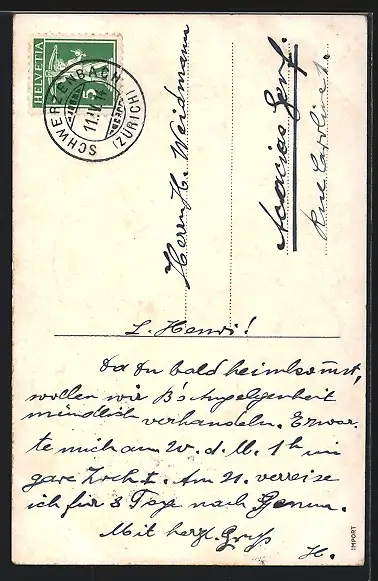 HELVETIA
5
SCHWERZENBACH
(ZÜRICH)
Herrn H. Weidmann
Acacias Genf.
Rue Caroline 1.
L. Henri!
Da du bald heimkommst,
wollen wir B's Angelegenheit
mündlich verhandeln. Erwar-
te mich am 20. d. M. 1h im
gare Zrch I. Am 21. verreise
ich für 3 Tage nach Genua.
Mit herzl. Gruss
H.
IMPORT